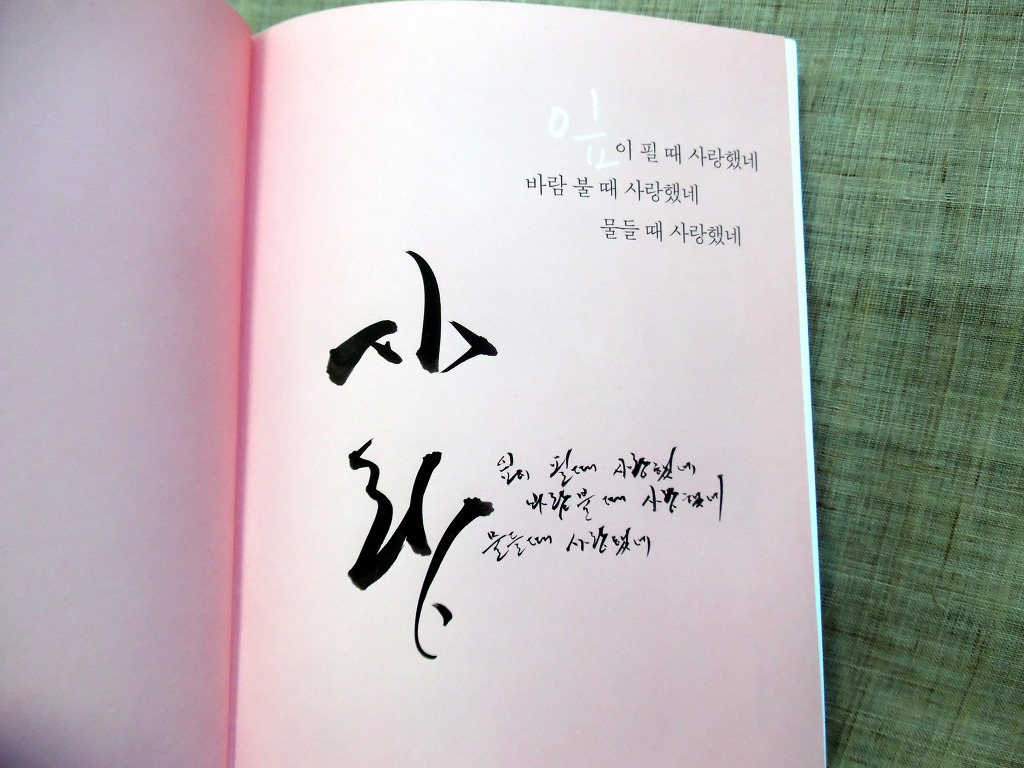 잎이 필 때 사랑했네
바람 불 때 사랑했네
물들 때 사랑했네
사
랑
잎이 필 때 사랑했네
바람 불 때 사랑했네
물들 때 사랑했네